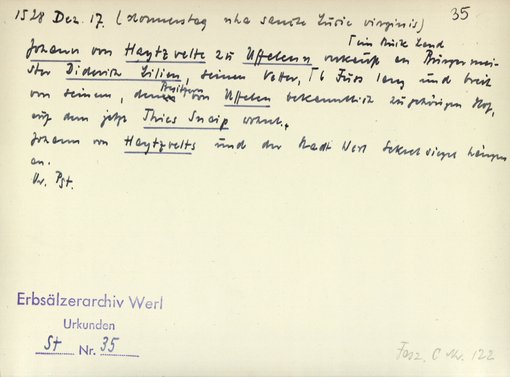 1528 Dez. 17. (donnerstag nha sancte Lucie virginis) 35
Γ ein Stück Land
Johann von Haytzvelte zu Uffelenn verkauft an Bürgermei-
ster Diderich Lilien, seinen Vetter, Γ 6 Füss lang und breit
von seinem, denen Besitzern von Uffelen bekanntlich zugehörigen Hof,
auf dem jetzt Thies Snaip wohnt.
Johann von Haytzvelts und der Stadt Werl Sekretsiegel hängen
an.
Or. Pgt.
Erbsälzerarchiv Werl
Urkunden
St Nr. 35
Fasz. C Nr. 122